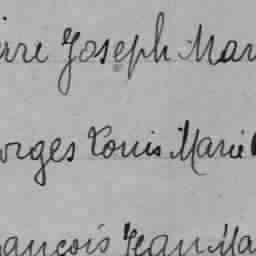 erre Joseph Mar
orges Louis Marie
ançois Jean Ma